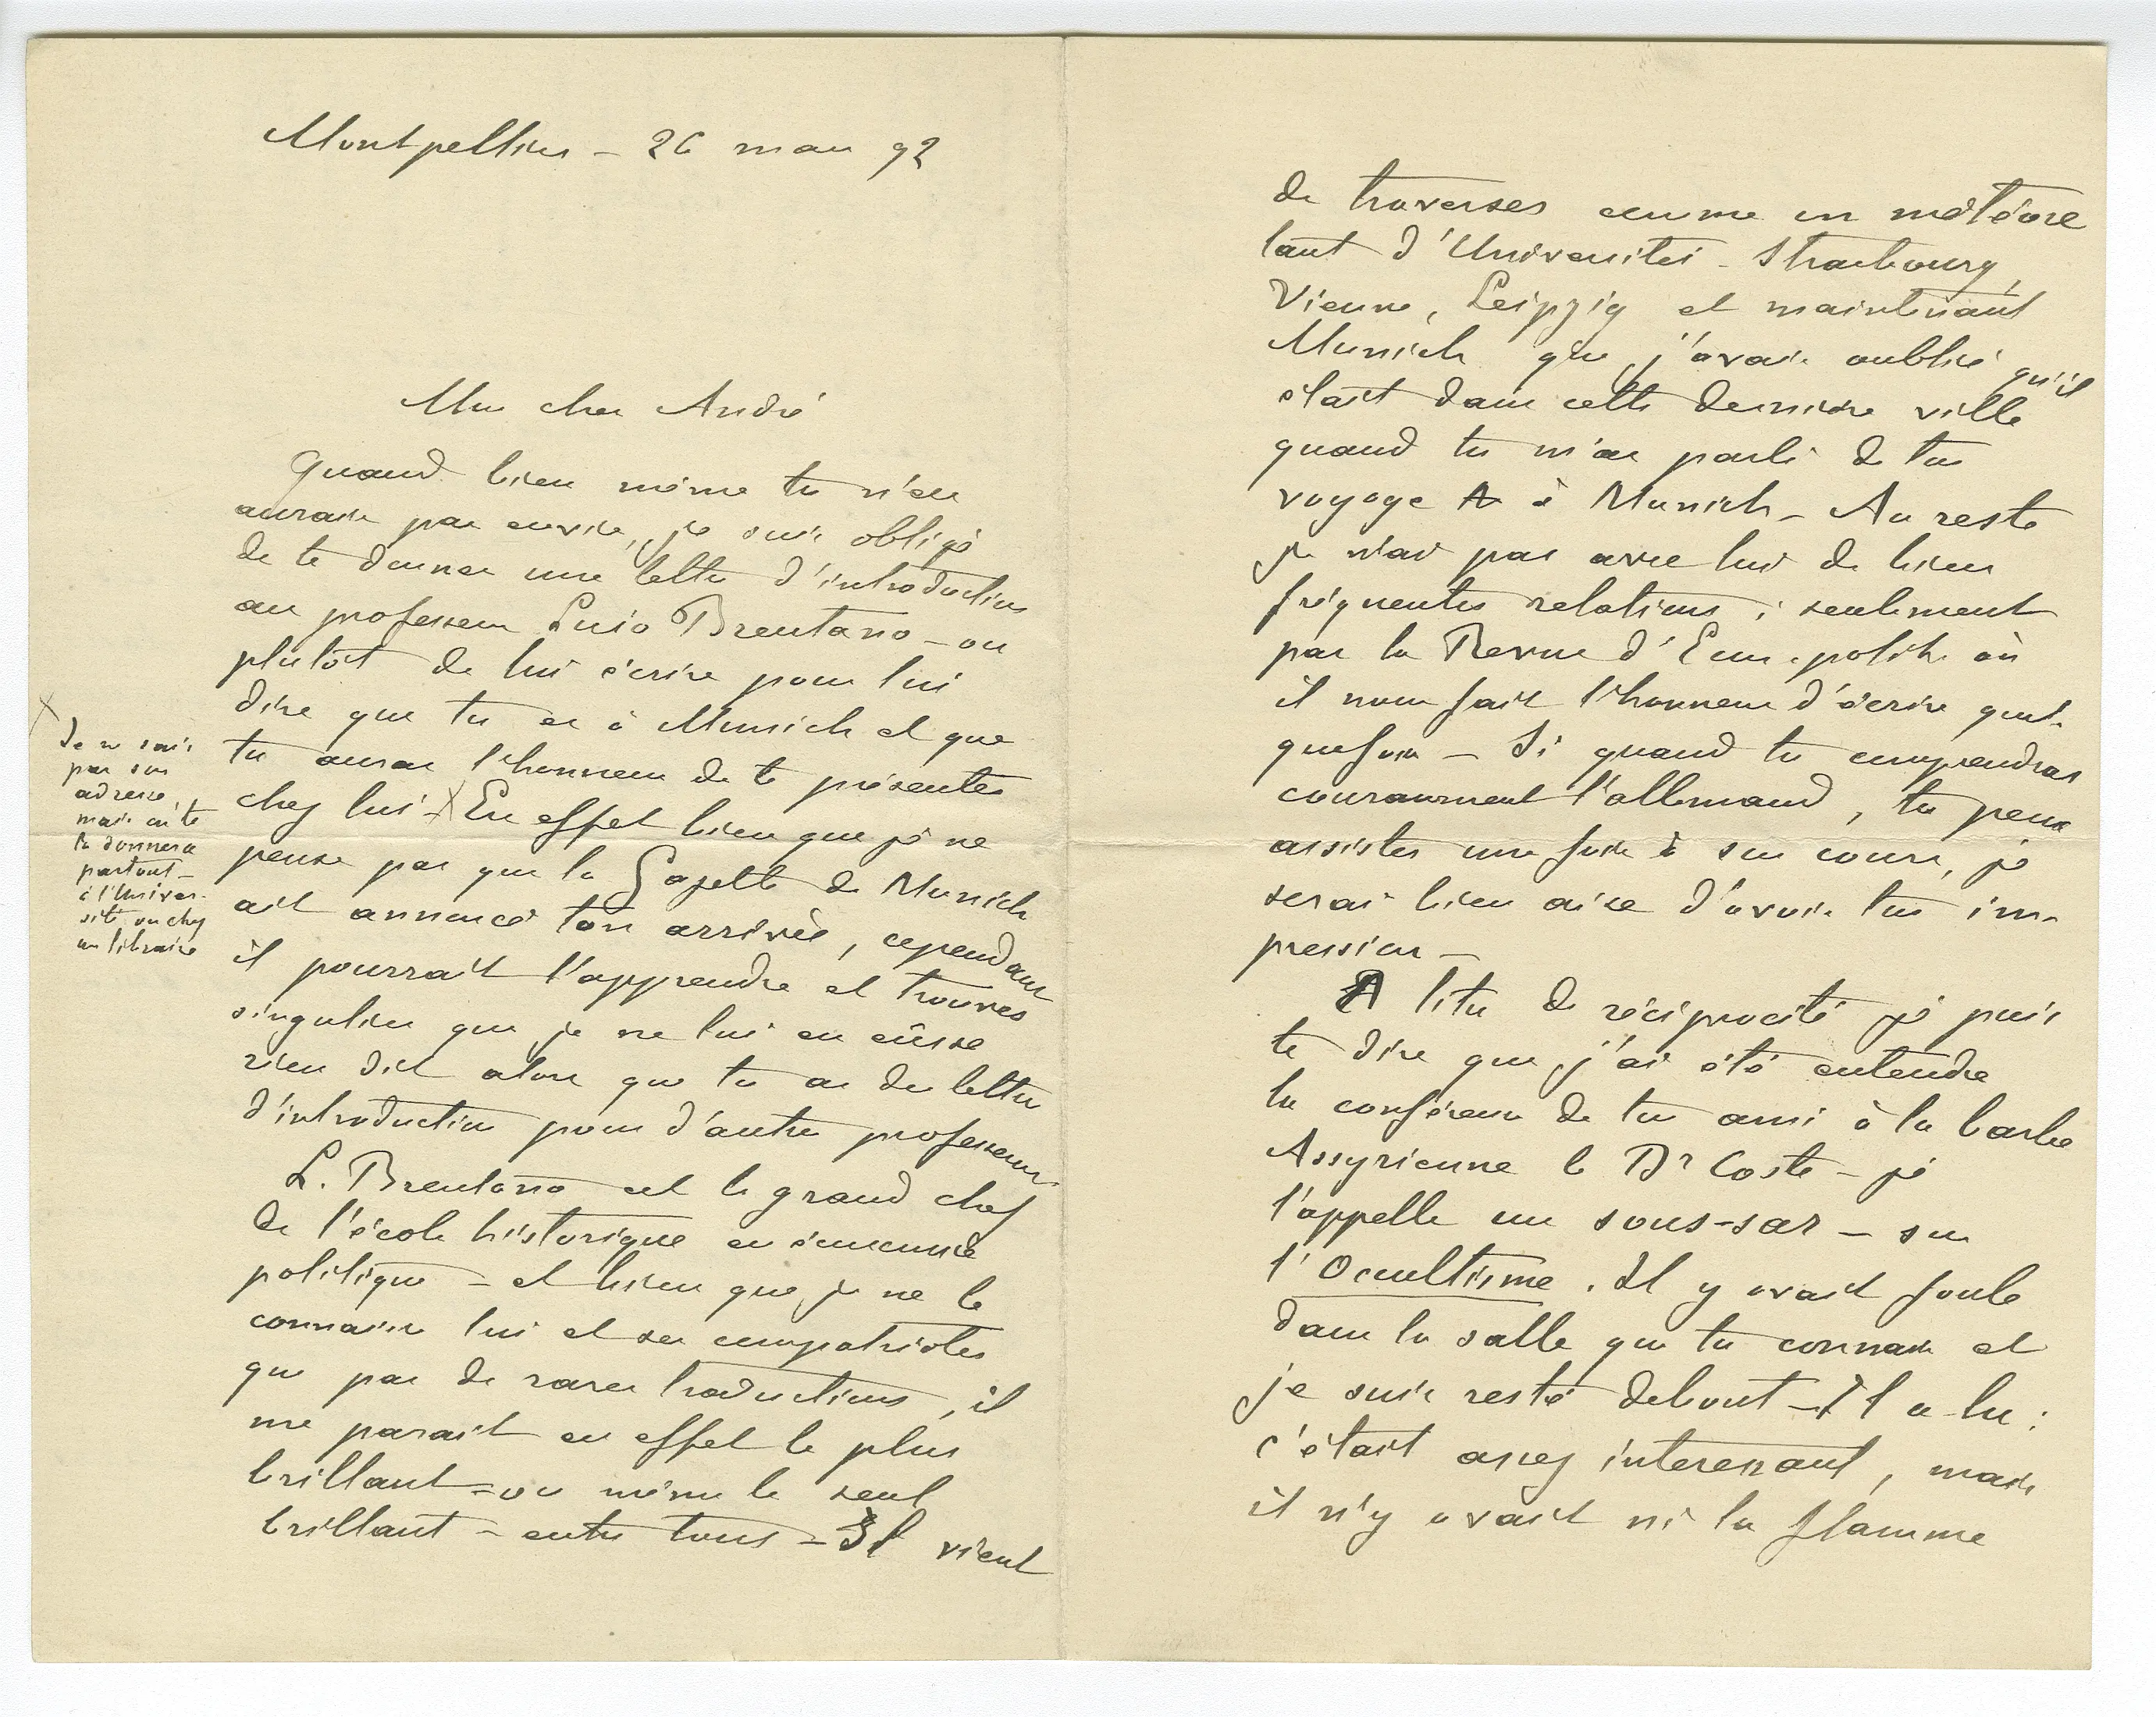 Montpellier – 26 mars 92
Mon cher André
Quand bien même tu n'en
aurais pas envie, je suis obligé
de te donner une lettre d'introduction
au professeur Lujo Brentano – ou
plutôt de lui écrire pour lui
dire que tu es à Munich et que
tu auras l'honneur de te présenter
chez lui – X En effet bien que je ne
pense pas que la Gazette de Munich
ait annoncé ton arrivée, cependant
il pourrait l'apprendre et trouver
singulier que je ne lui en eusse
rien dit alors que tu as des lettres
d'introduction pour d'autres professeurs.
L. Brentano est le grand chef
de l'école historique en économie
politique – et bien que je ne le
connaisse lui et ses compatriotes
que par de rares traductions, il
me parait en effet le plus
brillant – ou même le seul
brillant – entre tous – Il vient
X
Je ne sais
pas son
adresse,
mais on te
la donnera
partout –
à l'Univer-
sité ou chez
un libraire
de traverser comme un météore
tant d'Universités – Strasbourg,
Vienne, Leipzig et maintenant
Munich que j'avais oublié qu'il
était dans cette dernière ville
quand tu m'as parlé de ton
voyage à Munich – Au reste
je n'ai pas avec lui de bien
fréquentes relations ; seulement
par la Revue d'Econ. polit. où
il nous fait l'honneur d'écrire quel-
quefois – Si quand tu comprendras
couramment l'allemand, tu peux
assister une fois à son cours, je
serai bien aise d'avoir ton im-
pression –
A titre de réciprocité je puis
te dire que j'ai été entendre
la conférence de ton ami à la barbe
Assyrienne le Dr Coste – je
l'appelle un sous-sar – sur
l'Occultisme. Il y avait foule
dans la salle que tu connais et
je suis resté debout – Il a lu :
c'était assez interessant, mais
il n'y avait ni la flamme